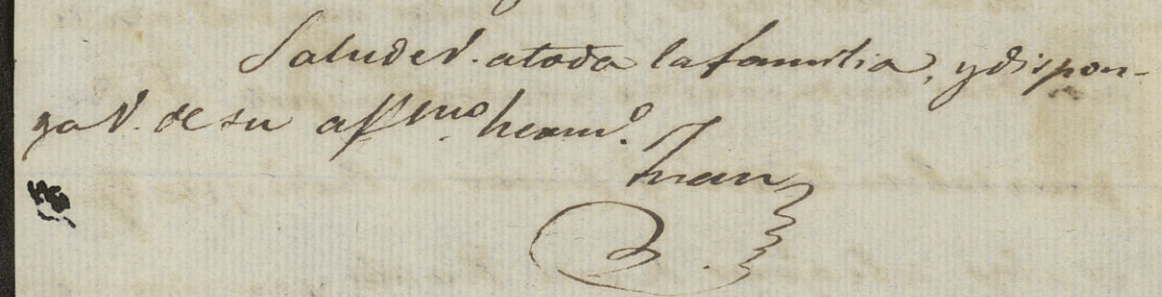 Salude V. a toda la familia, y dispon-
ga V. de su affmo. hermo.
Juan